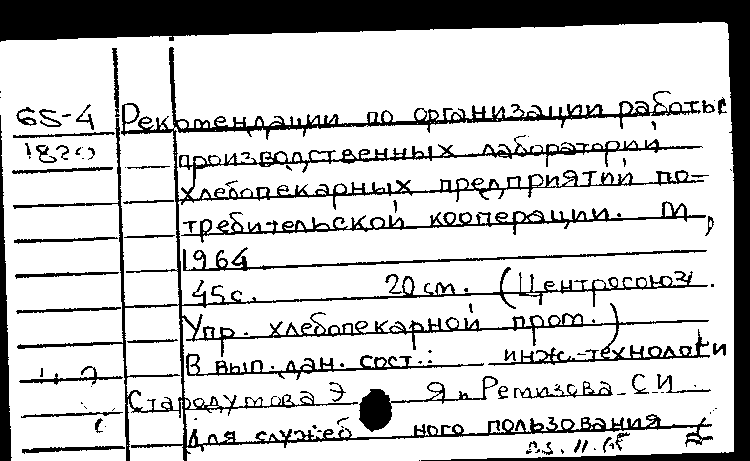 65-4 Рекомендации по организации работы
1820 производственных лабораторий
хлебопекарных предприятий по=
требительской кооперации. М,
1964
45с. 20 см. (Центросоюз.
Упр. хлебопекарной пром.)
В вып. дан. сост.: инж.-технологи
Стародумова Э Я и Ремизова С И
Для служеб ного пользования